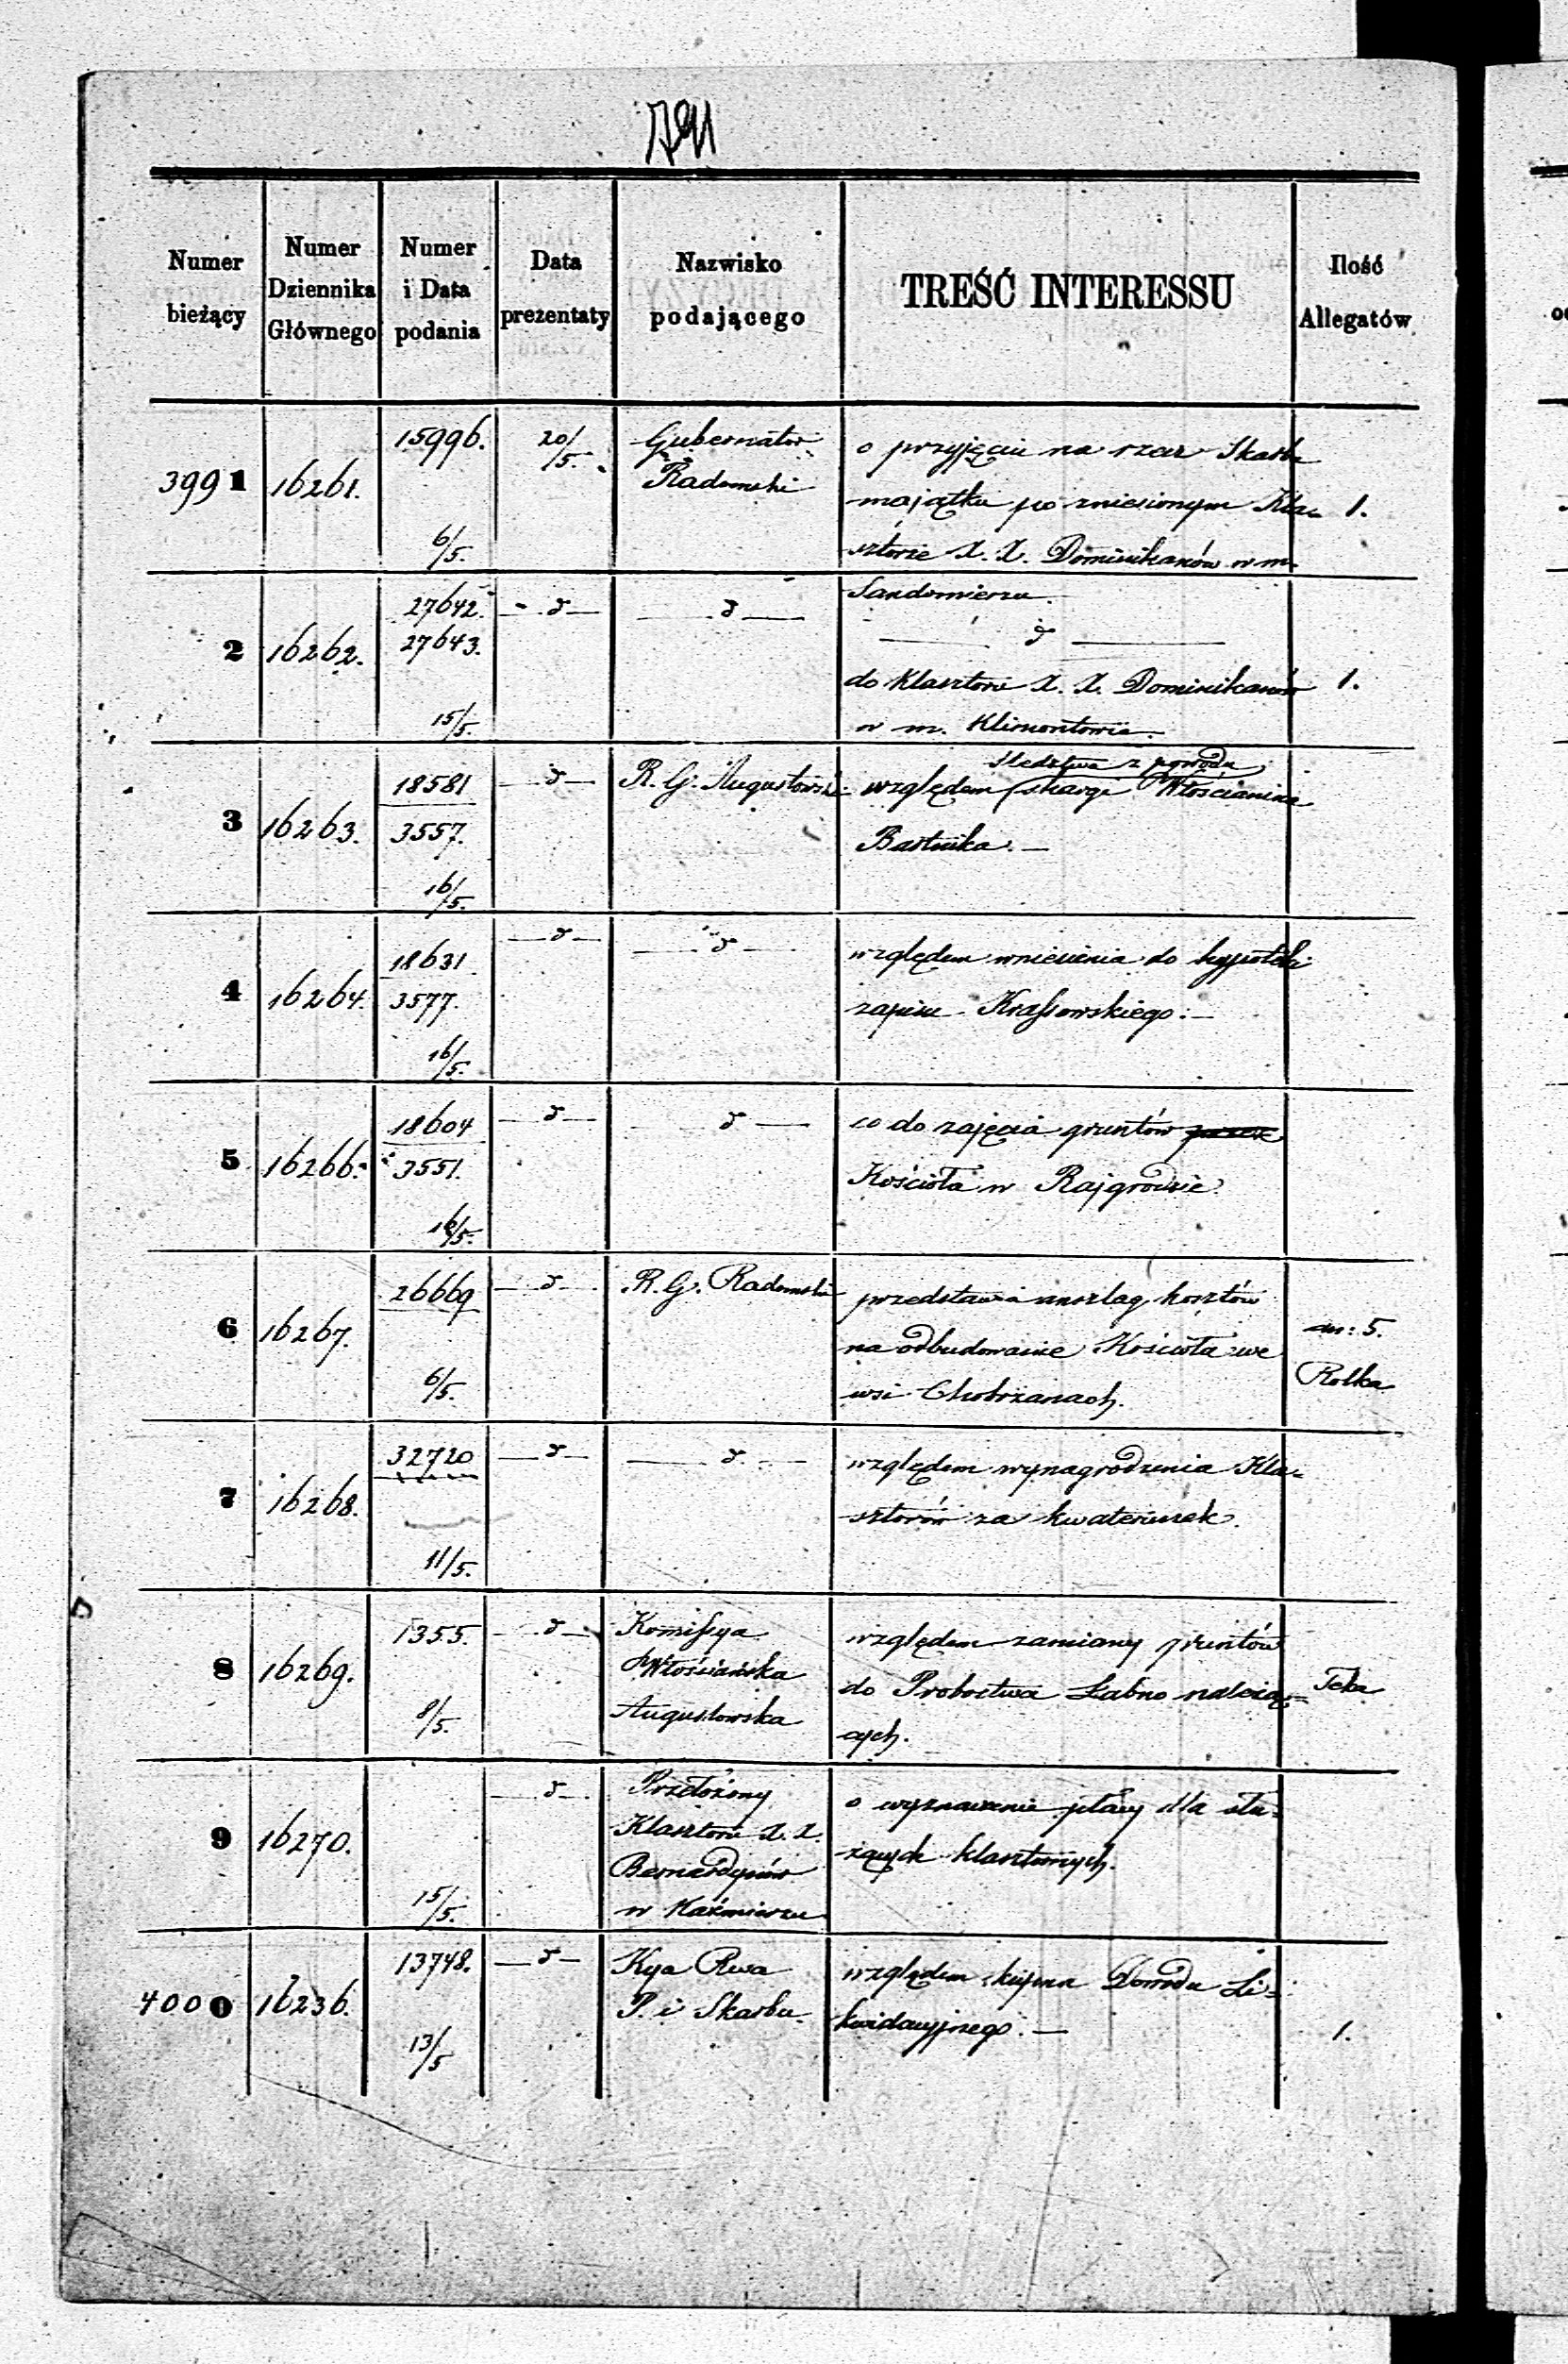 Numer bieżący | Numer Dziennika Głównego | Numer i Data podania | Data prezentaty | Nazwisko podającego | TREŚĆ INTERESSU | Ilość Allegatów
3991 | 16261. | 15996. | 20/5. | Gubernator | o przyjęciu na rzecz Skarbu
Radomski | majątku po zniesionym Kla= | 1.
6/5. | sztorze X. X. Dominikanów w m.
Sandomierzu.
2 | 16262. | 27642. | — d — | — d — | — d —
27643. | do Klasztoru X. X. Dominikanów | 1.
15/5. | w m. Klimontowie.
3 | 16263. | 18581 | — d — | R. G. Augustowski | względem śledztwa z powodu skargi Włościanina
3557. | Bartnika. —
16/5.
4 | 16264. | 18631 | — d — | — d — | względem wniesienia do hypoteki
3577. | zapisu Krassowskiego. —
16/5.
5 | 16266. | 18604 | — d — | — d — | co do zajęcia gruntów
3551. | Kościoła w Rajgrodzie.
16/5.
6 | 16267. | 26669 | — d — | R. G. Radomski | przedstawia anszlag kosztów
na odbudowanie Kościoła we | an: 5.
6/5. | wsi Chobrzanach. | Rolka
7 | 16268. | 32720 | — d — | — d — | względem wynagrodzenia Kla=
sztorów za kwaterunek.
11/5.
8 | 16269. | 1355. | — d — | Komissya | względem zamiany gruntów
Włościańska | do Probostwa Łabno należą= | Teka
8/5. | Augustowska | cych.
9 | 16270. | — d — | Przełożony | o wyznaczenie płacy dla słu=
Klasztoru X. X. | żących klasztornych.
Bernardynów
15/5. | w Kaźmierzu
4000 | 16236. | 13748. | — d — | Kya Rwa | względem kupna Dowodu Li=
P. i Skarbu. | kwidacyjnego. — | 1.
13/5